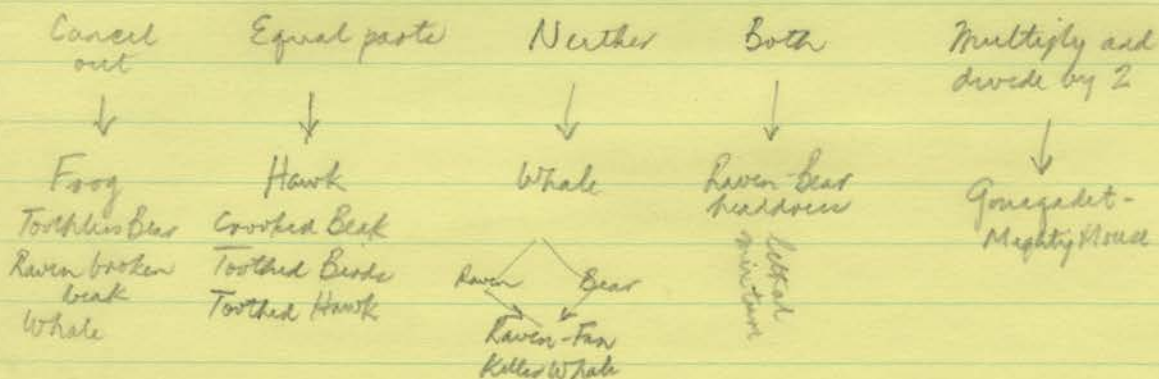 Cancel
out
Frog
Toothless Bear
Raven broken
beak
Whale
Equal parts
Hawk
Crooked Beak
Toothed Birds
Toothed Hawk
Neither
Whale
Raven Bear
Raven-Fin
Killer Whale
Both
Raven-Bear
headdress
lethal
mixture
Multiply and
divide by 2
Gonaqadet-
Mighty Mouse